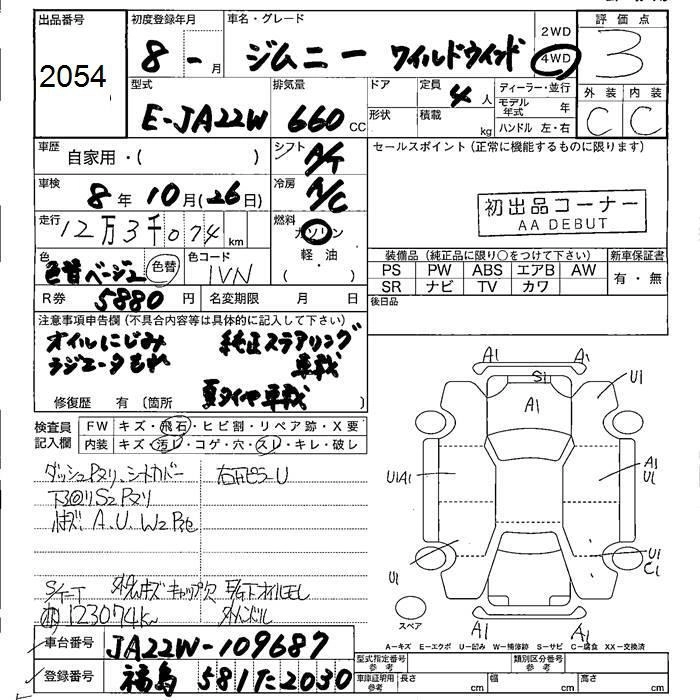 出品番号 初度登録年月 車名・グレード 評価点
2054 8 - 月 ジムニー ワイルドウインド 2WD 4WD 3
型式 排気量 ドア 定員 4 人 ディーラー・並行 外装 内装
E-JA22W 660 CC 形状 積載 kg モデル年式 年 C C
ハンドル 左・右
車歴 自家用・( ) シフト A/T セールスポイント(正常に機能するものに限ります)
車検 8 年 10 月(26日) 冷房 A/C
初出品コーナー
AA DEBUT
走行 12万3千074 km 燃料 ガソリン
軽・油
色 色替ベージュ 色替 色コード IVN 装備品(純正品に限り○をつけて下さい) 新車保証書
PS PW ABS エアB AW 有・無
SR ナビ TV カワ
R券 5880 円 名変期限 月 日 後日品
注意事項申告欄(不具合内容等は具体的に記入して下さい)
オイルにじみ 純正ステアリング
ラジエータもれ 車載
夏タイヤ車載
修復歴 有(箇所
検査員記入欄 FW キズ・飛石・ヒビ割・リペア跡・X要
内装 キズ・汚レ・コゲ・穴・スレ・キレ・破レ
シートカバー
A.U.W2
S/K-T キャップ欠
123074km 外ハンドル
A1 A1
S1 U1
A1
U1A1 A1
U1
U1 U1
C1
A1 A1
スペア
A-キズ E-エクボ U-凹ミ W-補修跡 S-サビ C-腐食 XX-交換済
車台番号 JA22W-109687 型式指定番号 参考 類別区分番号 参考
登録番号 福島 581た2030 車庫証明用 参考 長さ cm 幅 cm 高さ cm